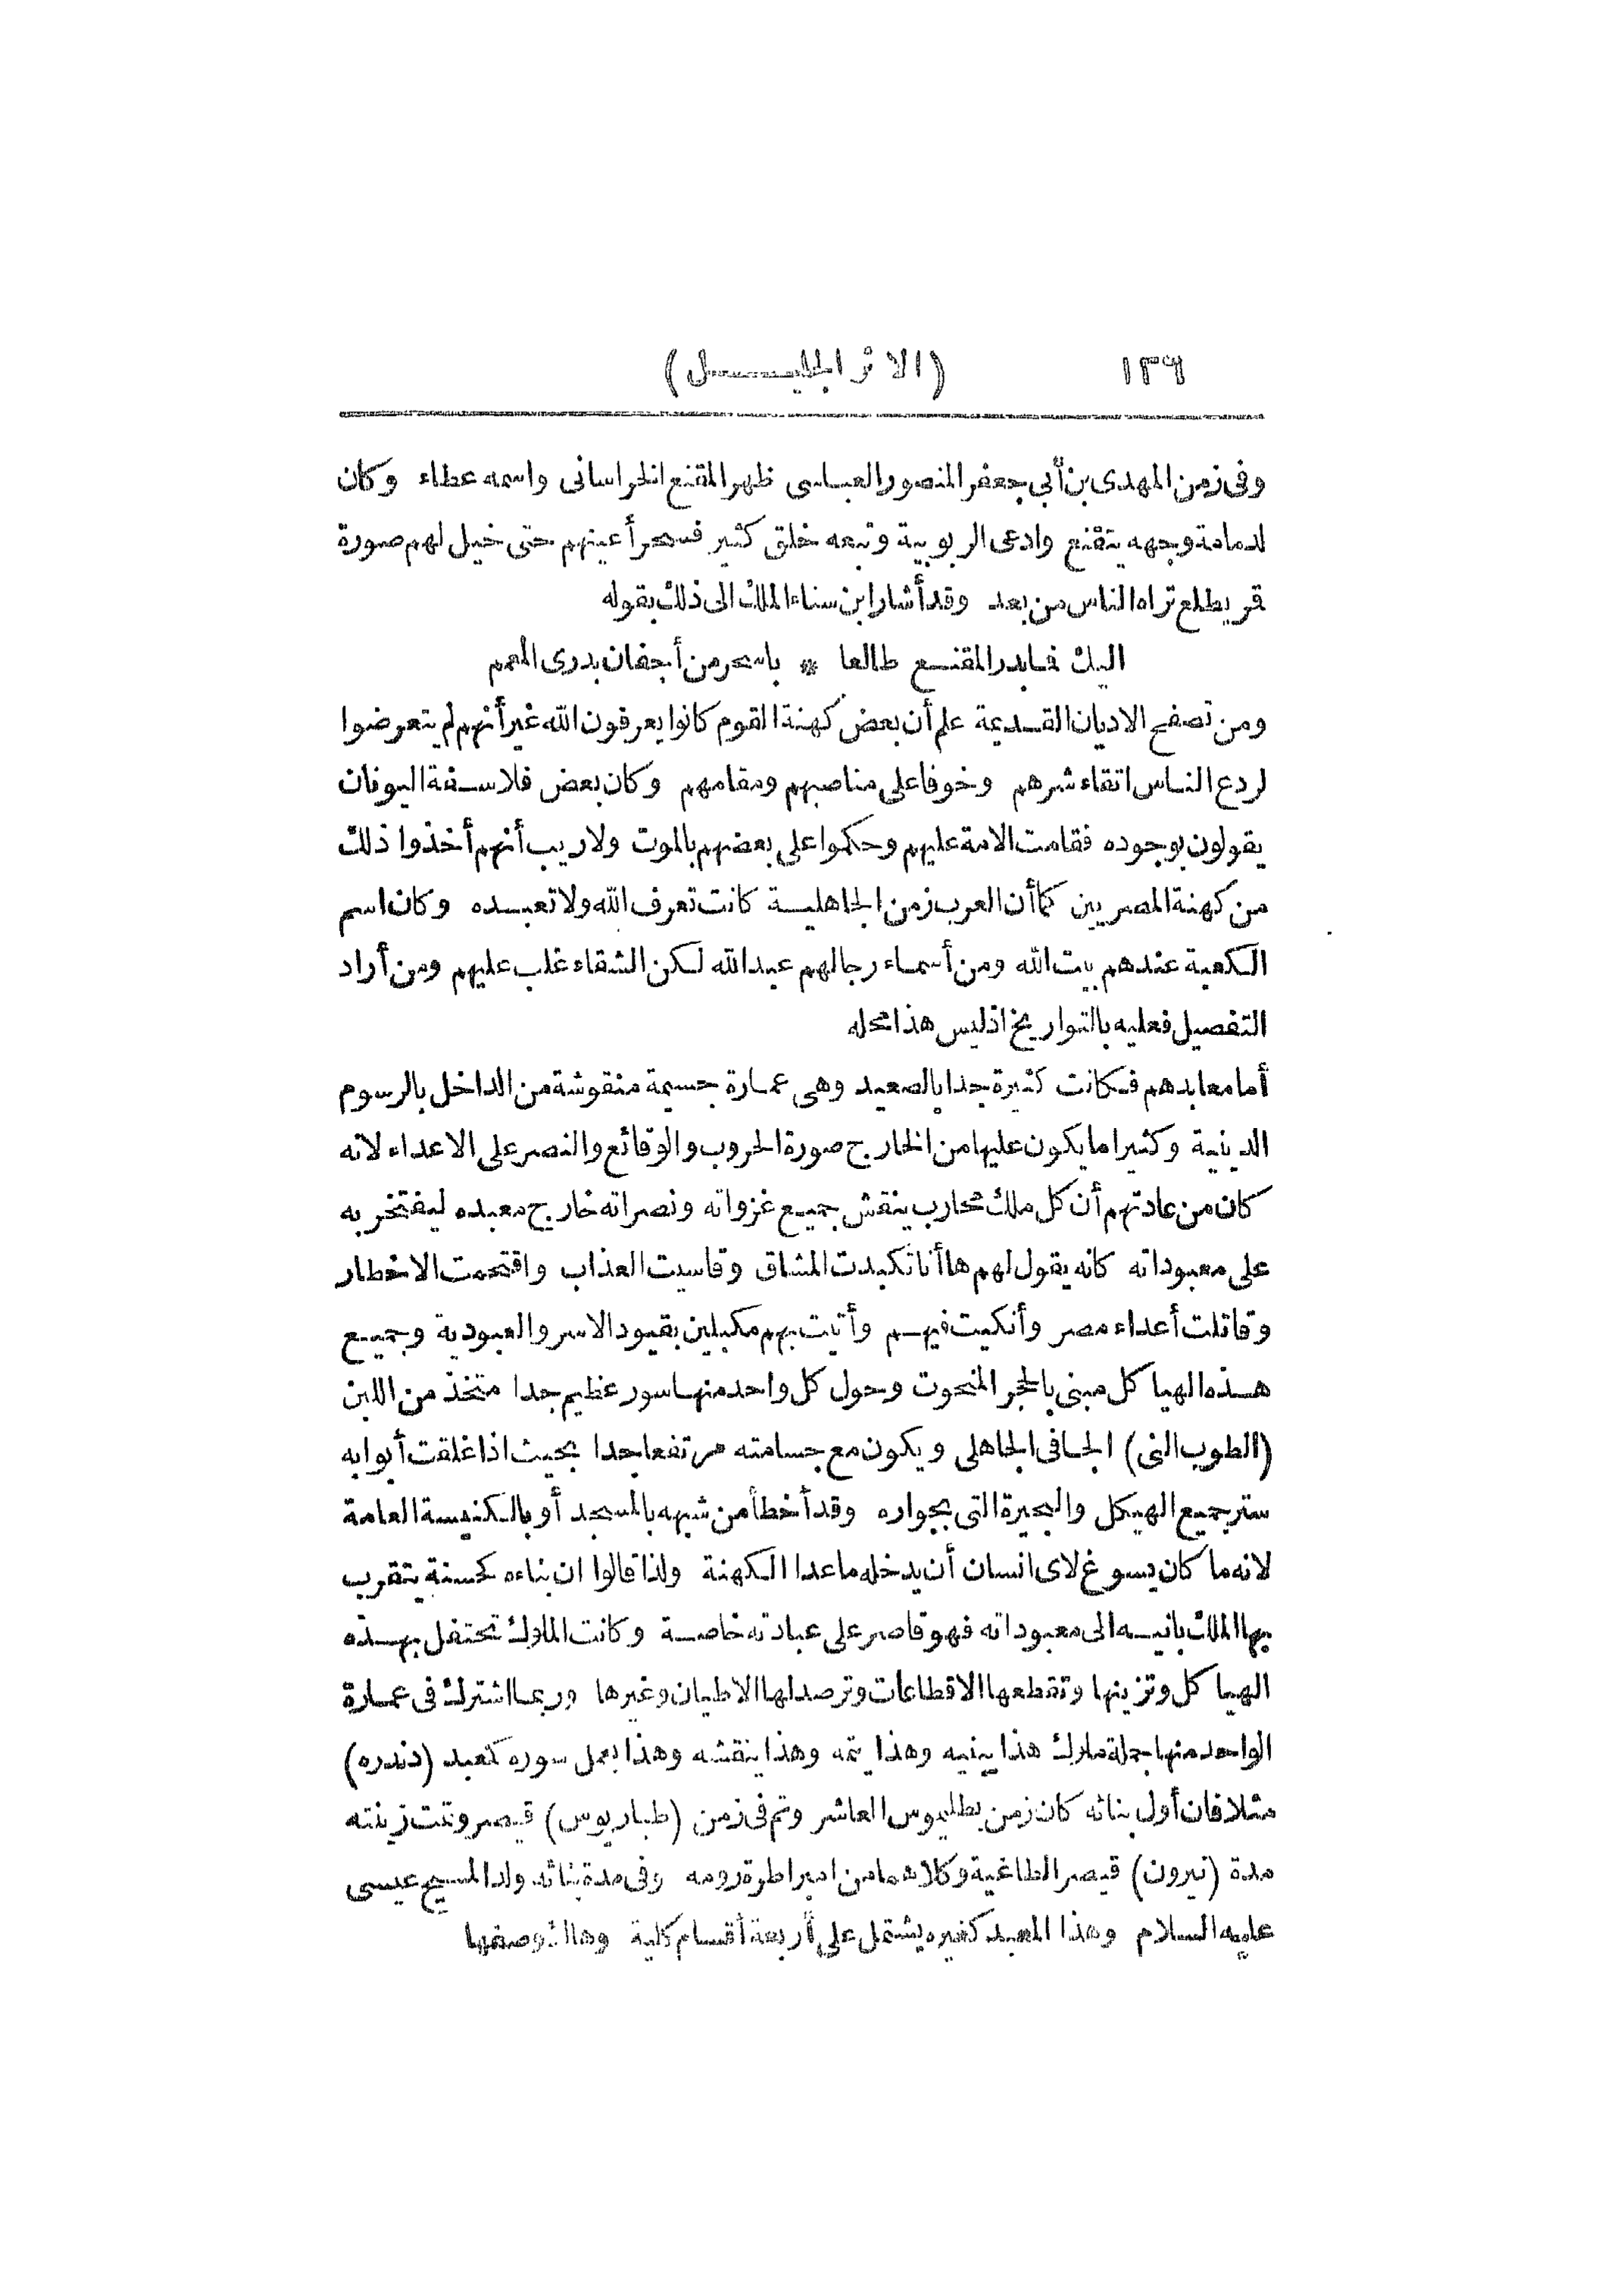 ١٣٦ (الاثر الجليـــــل)
وفى زمن المهدى بن أبى جعفر المنصور العباسى ظهر المقنع الخراسانى واسمه عطاء وكان
لدمامة وجهه يتقنع وادعى الربوبية وتبعه خلق كثير فسحر أعينهم حتى خيل لهم صورة
قر يطلع تراه الناس من بعد وقد أشار ابن سناء الملك الى ذلك بقوله
اليك فما بدر المقنع طالعا * باسحر من أجفان بدرى المعمم
ومن تصفح الاديان القديمة علم أن بعض كهنة القوم كانوا يعرفون الله غير أنهم لم يتعرضوا
لردع الناس اتقاء شرهم وخوفا على مناصبهم ومقامهم وكان بعض فلاسفة اليونان
يقولون بوجوده فقامت الامة عليهم وحكموا على بعضهم بالموت ولا ريب أنهم أخذوا ذلك
من كهنة المصريين كما أن العرب زمن الجاهلية كانت تعرف الله ولا تعبده وكان اسم
الكعبة عندهم بيت الله ومن أسماء رجالهم عبد الله لكن الشقاء غلب عليهم ومن أراد
التفصيل فعليه بالتواريخ اذ ليس هذا محله
أما معابدهم فكانت كثيرة جدا بالصعيد وهى عمارة جسيمة منقوشة من الداخل بالرسوم
الدينية وكثيرا ما يكون عليها من الخارج صورة الحروب والوقائع والنصر على الاعداء لانه
كان من عادتهم أن كل ملك محارب ينقش جميع غزواته ونصراته خارج معبده ليفتخر به
على معبوداته كانه يقول لهم ها أنا تكبدت المشاق وقاسيت العذاب واقتحمت الاخطار
وقاتلت أعداء مصر وأنكيت فيهم وأتيت بهم مكبلين بقيود الاسر والعبودية وجميع
هذه الهياكل مبنى بالحجر المنحوت وحول كل واحد منها سور عظيم جدا متخذ من اللبن
(الطوب النى) الجافى الجاهلى ويكون مع جسامته مرتفعا جدا بحيث اذا غلقت أبوابه
ستر جميع الهيكل والبحيرة التى بجواره وقد أخطأ من شبهه بالمسجد أو بالكنيسة العامة
لانه ما كان يسوغ لاى انسان أن يدخله ما عدا الكهنة ولذا قالوا ان بناءه كحسنة يتقرب
بها الملك بانيه الى معبوداته فهو قاصر على عبادته خاصة وكانت الملوك تحتفل بهذه
الهياكل وتزينها وتقطعها الاقطاعات وترصد لها الاطيان وغيرها وربما اشترك فى عمارة
الواحد منها جملة ملوك هذا يبنيه وهذا يتمه وهذا ينقشه وهذا يعمل سوره كمعبد (دندره)
مثلا فان أول بنائه كان زمن بطليموس العاشر وتم فى زمن (طباريوس) قيصر وتمت زينته
مدة (نيرون) قيصر الطاغية وكلاهما من امبراطرة رومه وفى مدة بنائه ولد المسيح عيسى
عليه السلام وهذا المعبد كغيره يشتمل على أربعة أقسام كلية وهاك وصفها